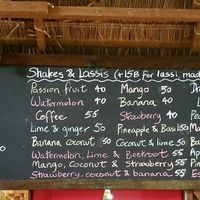 Shakes & Lassis (+15B for lassi, mad
Passion fruit 40 Mango 50
Watermelon 40 Banana 40
Coffee 55 Strawberry 40
Lime & ginger 50 Pineapple & Basi 50
Banana, coconut 50 Coconut & lime 50
Watermelon, Lime & Beetroot 55
Mango, Coconut & Strawberry 55
Strawberry, coconut & banana 55